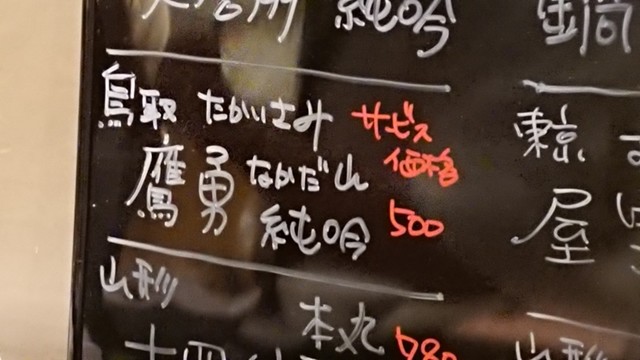 純吟
鳥取 たかいさみ サービス
価格
鷹勇 なかだれ
純吟 500
山形
本丸 780
東京
屋
山形